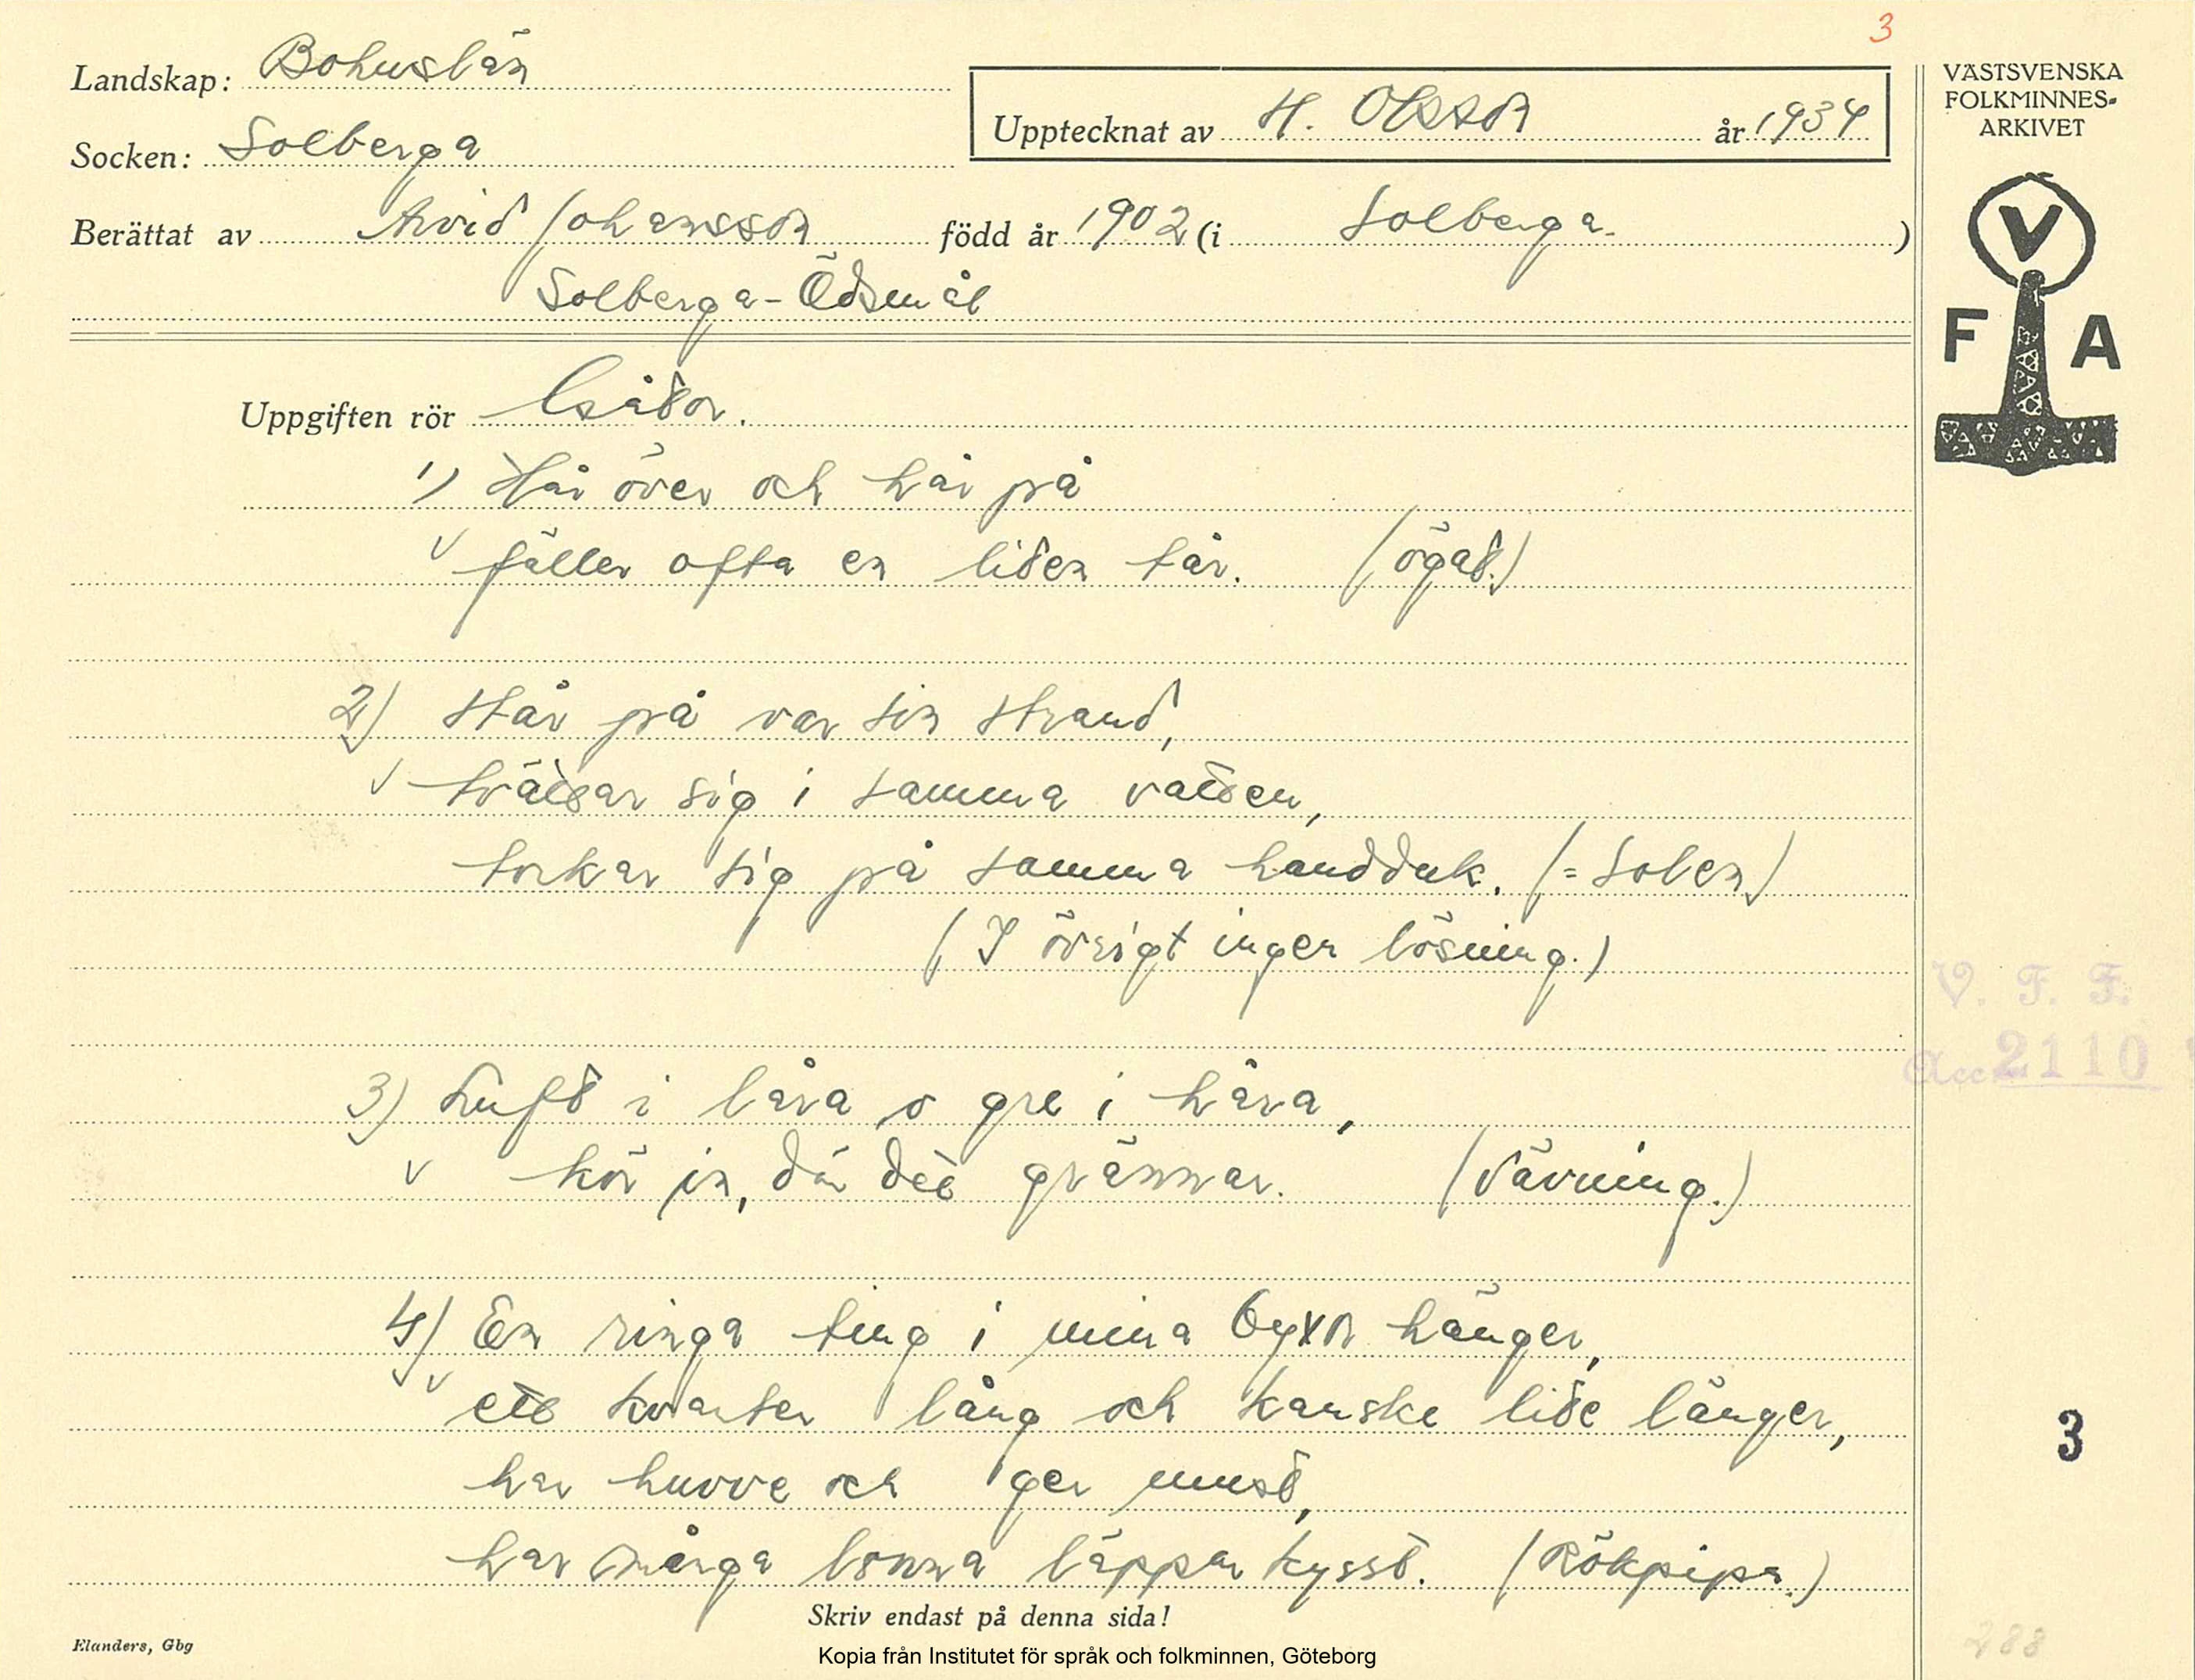 3
Landskap: Bohuslän
Socken: Solberga
Upptecknat av H. Olsson år 1934
Berättat av Arvid Johansson född år 1902 (i Solberga.)
Solberga-Ödsmål
VÄSTSVENSKA
FOLKMINNES-
ARKIVET
V
F A
Uppgiften rör Gåtor.
1) Hår över och hår på
fäller ofta en liten tår. (ögat.)
2) Står på var sin strand,
tvättar sig i samma vatten,
torkar sig på samma handduk. (= Solen)
(I övrigt ingen lösning.)
V. F. F.
Acc 2110
3) Luft i låra o gre i håra,
kör in, där det grännar. (Vävning.)
4) En ringa ting i mina byxor hänger,
ett kvarter lång och kanske lite länger,
har huvve och ger must,
har många  läppar kysst. (Rökpipa.)
3
Skriv endast på denna sida!
Elanders, Gbg
Kopia från Institutet för språk och folkminnen, Göteborg
288